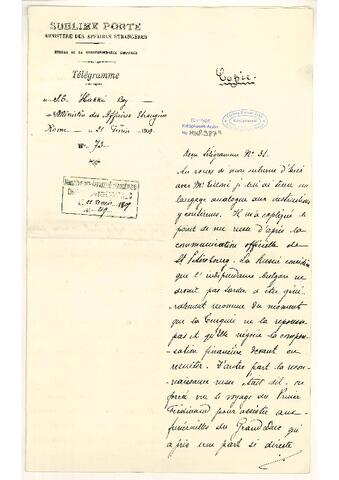 SUBLIME PORTE
MINISTÈRE DES AFFAIRES ÉTRANGÈRES
BUREAU DE LA CORRESPONDANCE
Télégramme
Copie.
Hakki Bey
Ministère des Affaires Étrangères
Rome 1909
No. 73
Reçu télégramme No. 31.
Au cours de mon entrevue d'hier
avec Mr. j'ai tenu un
langage analogue aux instructions
y contenues. Il m'a expliqué le
point de vue russe d'après la
communication officielle de
St Pétersbourg. La Russie considère
que l'indépendance bulgare ne
devait pas tarder à être géné-
ralement reconnue du moment
que la Turquie ne la repousse
pas et qu'Elle négocie la compen-
sation financière devant en
résulter. D'autre part la recon-
naissance russe était dit-on
forcée vu le voyage du Prince
Ferdinand pour assister aux
funérailles du Grand Duc qui
a pris une part si directe